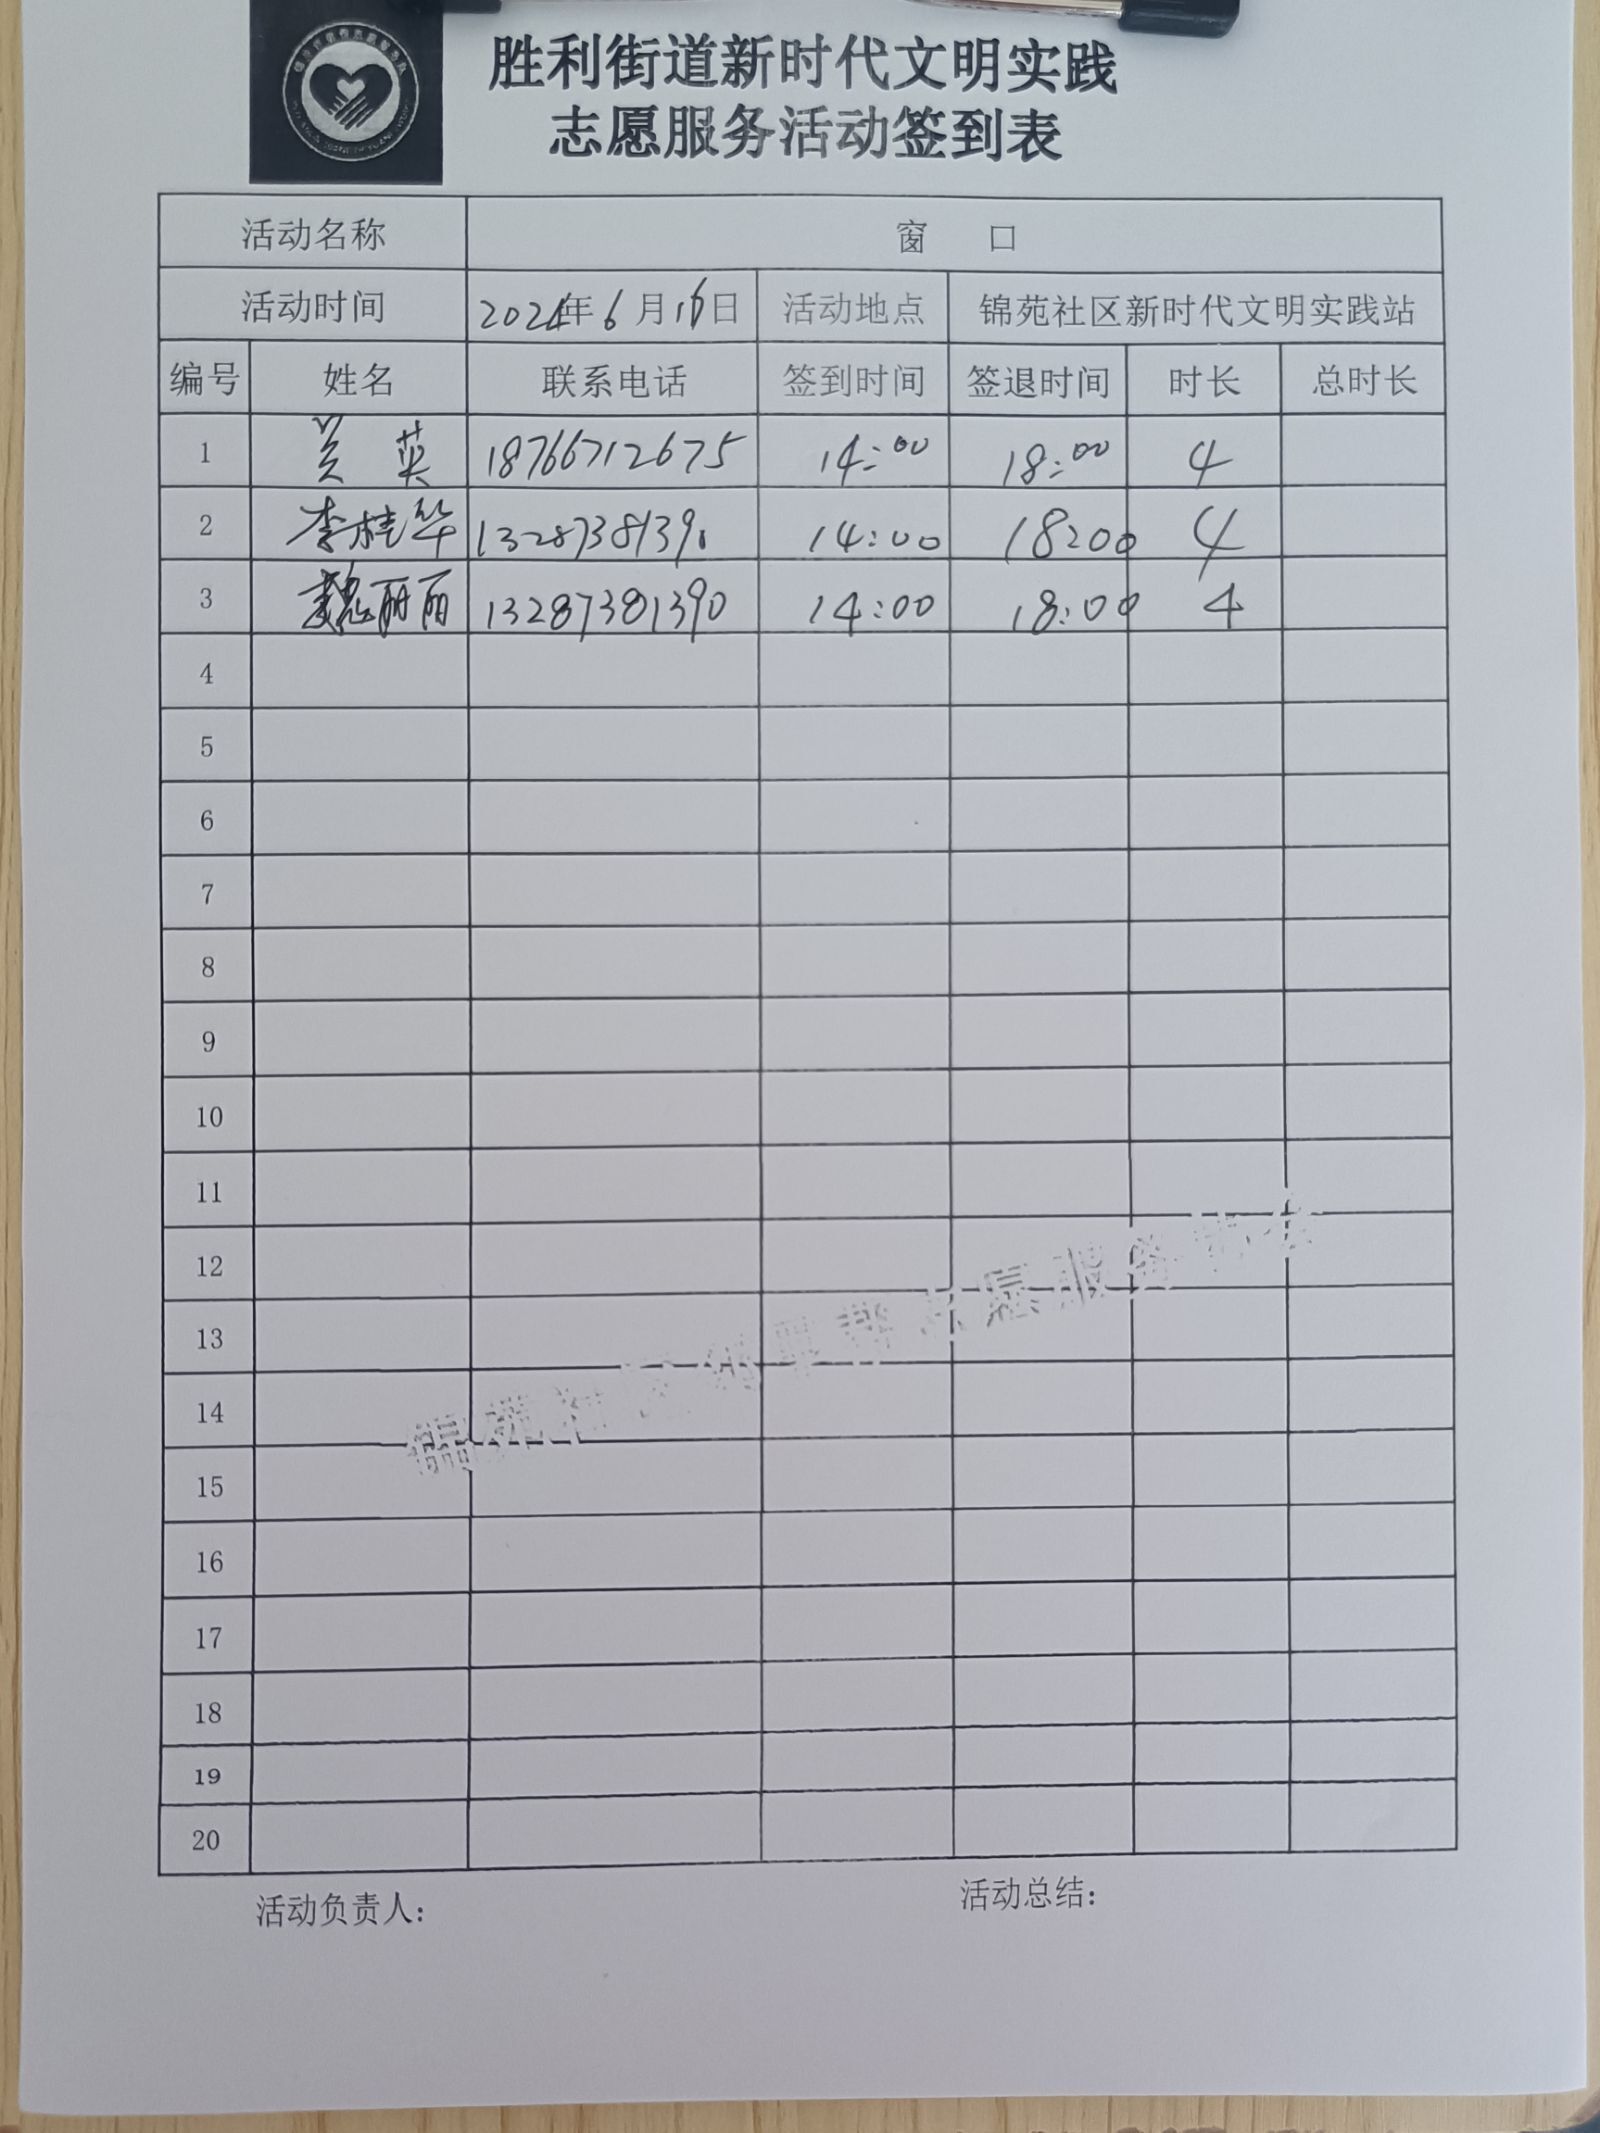 胜利街道新时代文明实践
志愿服务活动签到表
活动名称 窗 口
活动时间 2024年6月16日 活动地点 锦苑社区新时代文明实践站
编号 姓名 联系电话 签到时间 签退时间 时长 总时长
1 吴英 18766712675 14:00 18:00 4
2 李桂华 1328738139 14:00 18:00 4
3 魏丽丽 13287381390 14:00 18:00 4
4
5
6
7
8
9
10
11
12
13
14
15
16
17
18
19
20
锦苑社区 志愿服务
活动负责人：
活动总结：